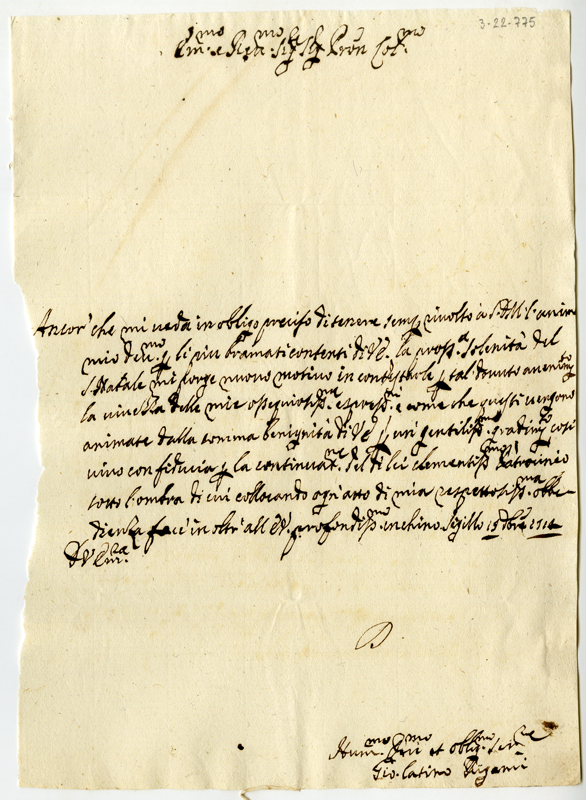 3-22-775
Em.mo e R.mo Sig. Sig. Pron Col.mo
Ancor che mi veda in obligo preciso di tenere semp. rivolto à S.D.M. l'animo
mio per li piu bramati contenti di VE. la pross.a solenità del
S. Natale mi porge nuovo motivo in contestarle p. tal dovuto
la vivezza delle mie ossequiosiss.me espress.ni e come che questi vengono
animate dalla somma benignità di VE p. un gentiliss.mo gradim.to così
vivo con fiducia p. la continuat.ne del di lei clementiss.mo Patrocinio
sotto l'ombra di cui collocando ogn'atto di mia respettosiss.ma obbe-
dienza facc' inoltr' all' EV. profondiss.mo inchino. Sigillo 15 Xbre 1714
D V Em.za
D
Hum.mo et oblig.mo
Gio. Latino